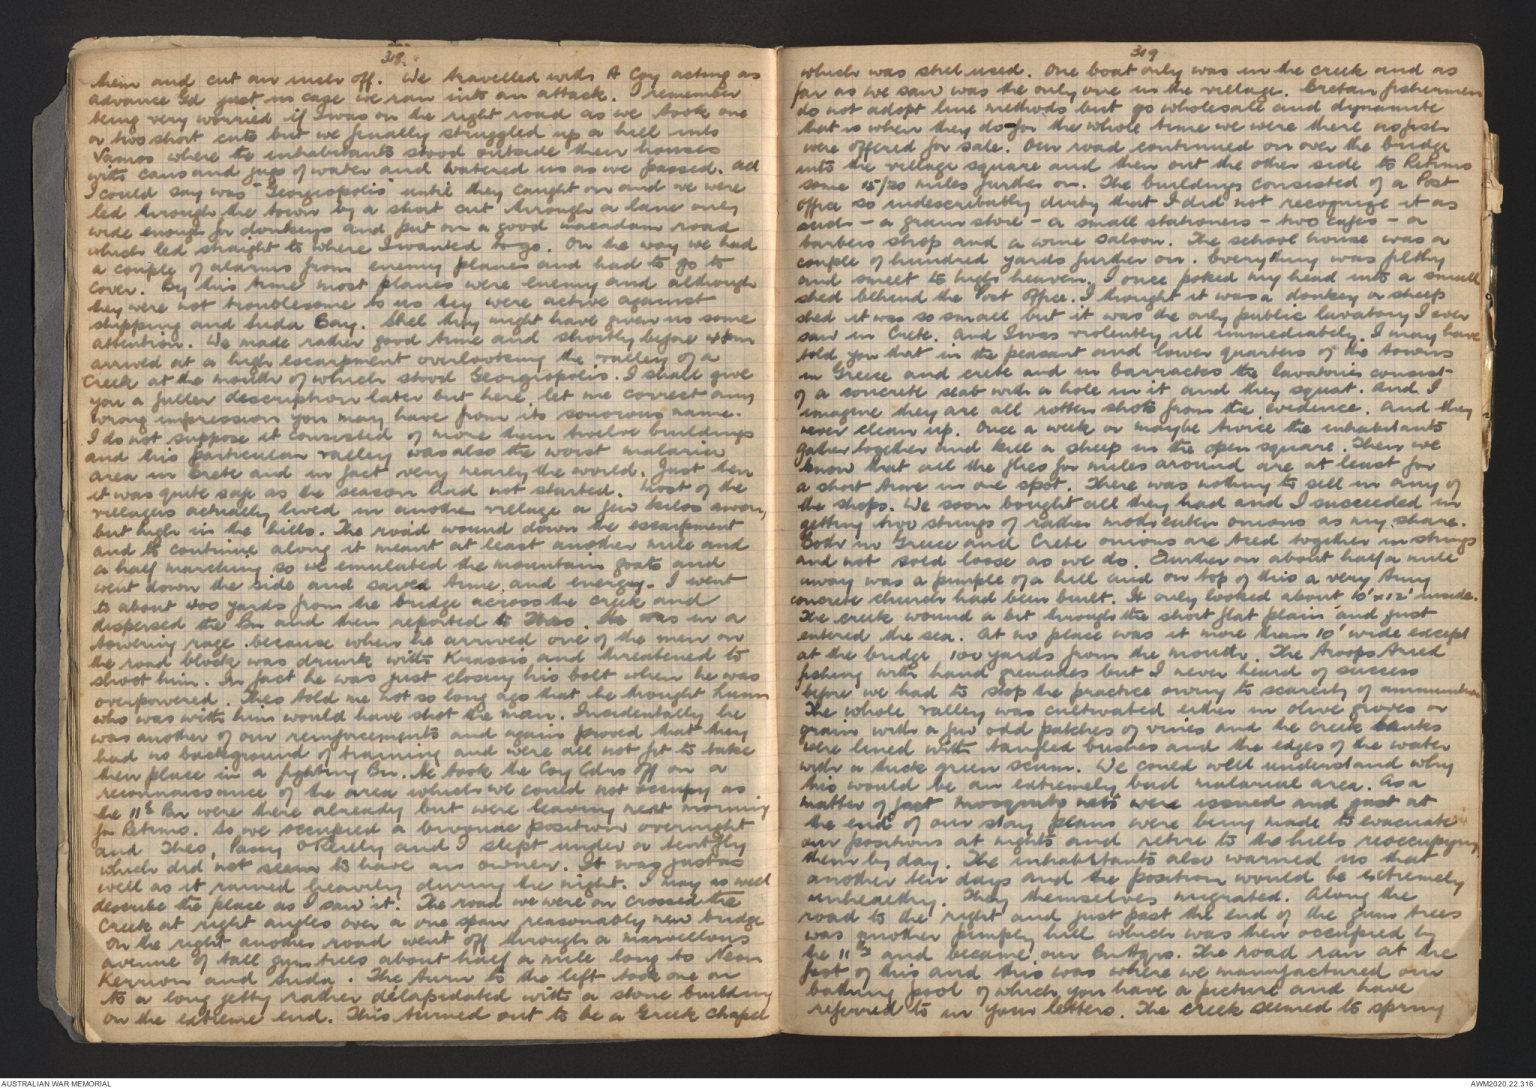 318.
them and cut an inch off. We travelled with A Coy acting as
advance Gd just in case we ran into an attack. I remember
being very worried if I was on the right road as we took one
or two short cuts but we finally struggled up a hill into
Vamos where the inhabitants stood outside their houses
with cans and jugs of water and watered us as we passed. All
I could say was "Georgiopolis" until they caught on and we were
led through the town by a short cut through a lane only
wide enough for donkeys and put on a good macadam road
which led straight to where I wanted to go. On the way we had
a couple of alarms from enemy planes and had to go to
cover. By this time most planes were enemy and although
they were not troublesome to us they were active against
shipping and Suda Bay. Still they might have given us some
attention. We made rather good time and shortly before
arrived at a high escarpment overlooking the valley of a
Creek at the mouth of which stood Georgiopolis. I shall give
you a fuller description later but here, let me correct any
wrong impression you may have from its sonorous name.
I do not suppose it consisted of more than twelve buildings
and this particular valley was also the worst malaria
area in Crete and in fact very nearly the world. Just then
it was quite safe as the season had not started. Most of the
villagers actually lived in another village a few kilos away,
but high in the hills. The road wound down the escarpment
and to continue along it meant at least another mile and
a half marching so we emulated the mountain goats and
went down the side and saved time and energy. I went
to about 200 yards from the bridge across the creek and
dispersed the Bn and then reported to Theo. He was in a
towering rage because when he arrived one of the men on
the road block was drunk with Krassis and threatened to
shoot him. In fact he was just closing his bolt when he was
overpowered. Theo told me not so long ago that he thought
who was with him would have shot the man. Incidentally he
was another of our reinforcements and again proved that they
had no background of training and were all not fit to take
their place in a fighting Bn. He took the Coy Cdrs off on a
reconnaissance of the area which we could not occupy as
the 11th Bn were there already but were leaving next morning
for Retimo. So we occupied a bivouac position overnight
and Theo, Paddy O'Reilly and I slept under a tent fly
which did not seem to have an owner. It was just as
well as it rained heavily during the night. I may as well
describe the place as I saw it. The road we were on crossed the
Creek at right angles over a one span reasonably new bridge
On the right another road went off through a marvellous
avenue of tall gum trees about half a mile long to Neon
and Suda. The turn to the left took one on
to a long jetty rather dilapidated with a stone building
on the extreme end. This turned out to be a Greek Chapel
319
which was still used. One boat only was in the creek and as
far as we saw was the only one in the village. Cretan fishermen
do not adopt line methods but go wholesale and dynamite
that is when they do - for the whole time we were there no fish
were offered for sale. Our road continued on over the bridge
into the village square and then out the other side to Retimo
some 15/20 miles further on. The buildings consisted of a Post
Office so indescribably dirty that I did not recognize it as
such - a grain store - a small stationers - two cafes - a
barbers shop and a wine saloon. The school house was a
couple of hundred yards further on. Everything was filthy
and smelt to high heaven. I once poked my head into a small
shed behind the Post Office. I thought it was a donkey or sheep
shed it was so small but it was the only public lavatory I ever
saw in Crete. And I was violently ill immediately. I may have
told you that in the peasant and lower quarters of the towns
in Greece and Crete and in barracks the lavatories consist
of a concrete slab with a hole in it and they squat. And I
imagine they are all rotten shots from the evidence. And they
never clean up. Once a week or maybe twice the inhabitants
gather together and kill a sheep in the open square. Then we
know that all the flies for miles around are at least for
a short time in one spot. There was nothing to sell in any of
the shops. We soon bought all they had and I succeeded in
getting two strings of rather moth eaten onions as my share.
Both in Greece and Crete onions are tied together in strings
and not sold loose as we do. Further on about half a mile
away was a pimple of a hill and on top of this a very tiny
concrete church had been built. It only looked about 10'x12' inside.
The creek wound a bit through the short flat plain and just
entered the sea. At no place was it more than 10' wide except
at the bridge 100 yards from the mouth. The troops tried
fishing with hand grenades but I never heard of success
before we had to stop the practice owing to scarcity of ammunition
The whole valley was cultivated either in olive groves or
grain with a few odd patches of vines and the creek banks
were lined with tangled bushes and the edges of the water
with a thick green scum. We could well understand why
this would be an extremely bad malarial area. As a
matter of fact mosquito nets were issued and just at
the end of our stay plans were being made to evacuate
our positions at nights and retire to the hills reoccupying
them by day. The inhabitants also warned us that
another ten days and the position would be extremely
unhealthy. They themselves migrated. Along the
road to the right and just past the end of the gum trees
was another pimply hill which was then occupied by
the 11th and became our Bn Hqrs. The road ran at the
foot of this and this was where we manufactured our
bathing pool of which you have a picture and have
referred to in your letters. The creek seemed to spring
AUSTRALIAN WAR MEMORIAL
AWM2020.22.316